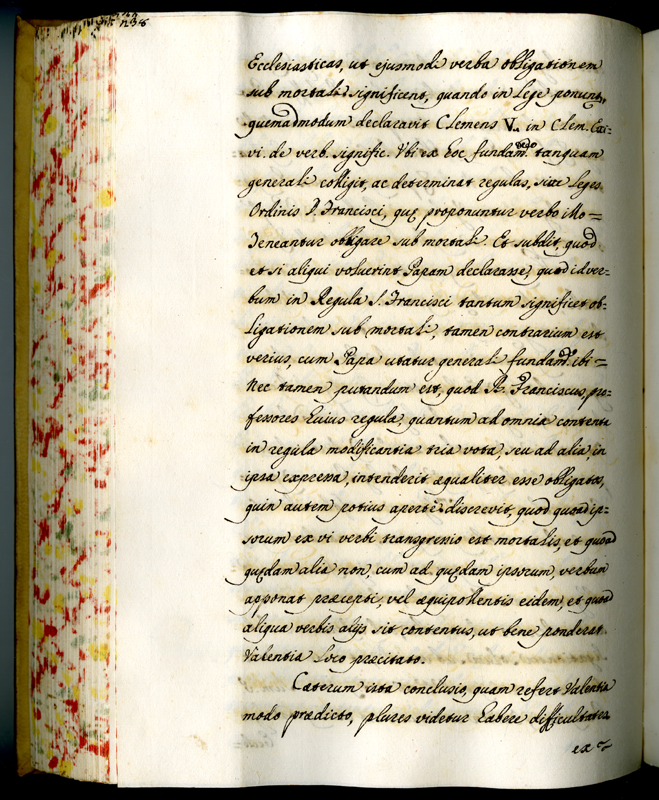 Ecclesiasticas, ut ejusmodi verba obligationem
sub mortali significent, quando in Lege ponunt,
quemadmodum declaravit Clemens V. in Clem. Exi=
vi. de verb. signific. Vbi ex hoc fundam.to tanquam
generali colligit, ac determinat regulas, sive Leges
Ordinis D. Francisci, quę proponuntur verbo illo=
Teneantur obligare sub mortali. Et subdit, quod
et si aliqui voluerint Papam declarasse, quod id ver=
bum in Regula S. Francisci tantum significet ob=
ligationem sub mortali, tamen contrarium est
verius, cum Papa utatur generali fundam.to ibi=
Nec tamen putandum est, quod B. Franciscus, pro=
fessores huius regulæ, quantum ad omnia contenta
in regula modificantia tria vota, seu ad alia, in
ipsa expressa, intenderit æqualiter esse obligatos,
quin autem potius aperte discrevit, quod quoad ip=
sorum ex vi verbi transgressio est mortalis, et quoad
quędam alia non, cum ad quędam ipsorum, verbum
apponat præcepti, vel æquipollentis eidem, et quoad
aliqua verbis alijs sit contentus, ut bene ponderat
Valentia loco præcitato.
Cæterum ista conclusio, quam refert Valentia
modo prædicto, plures videtur habere difficultates
ex